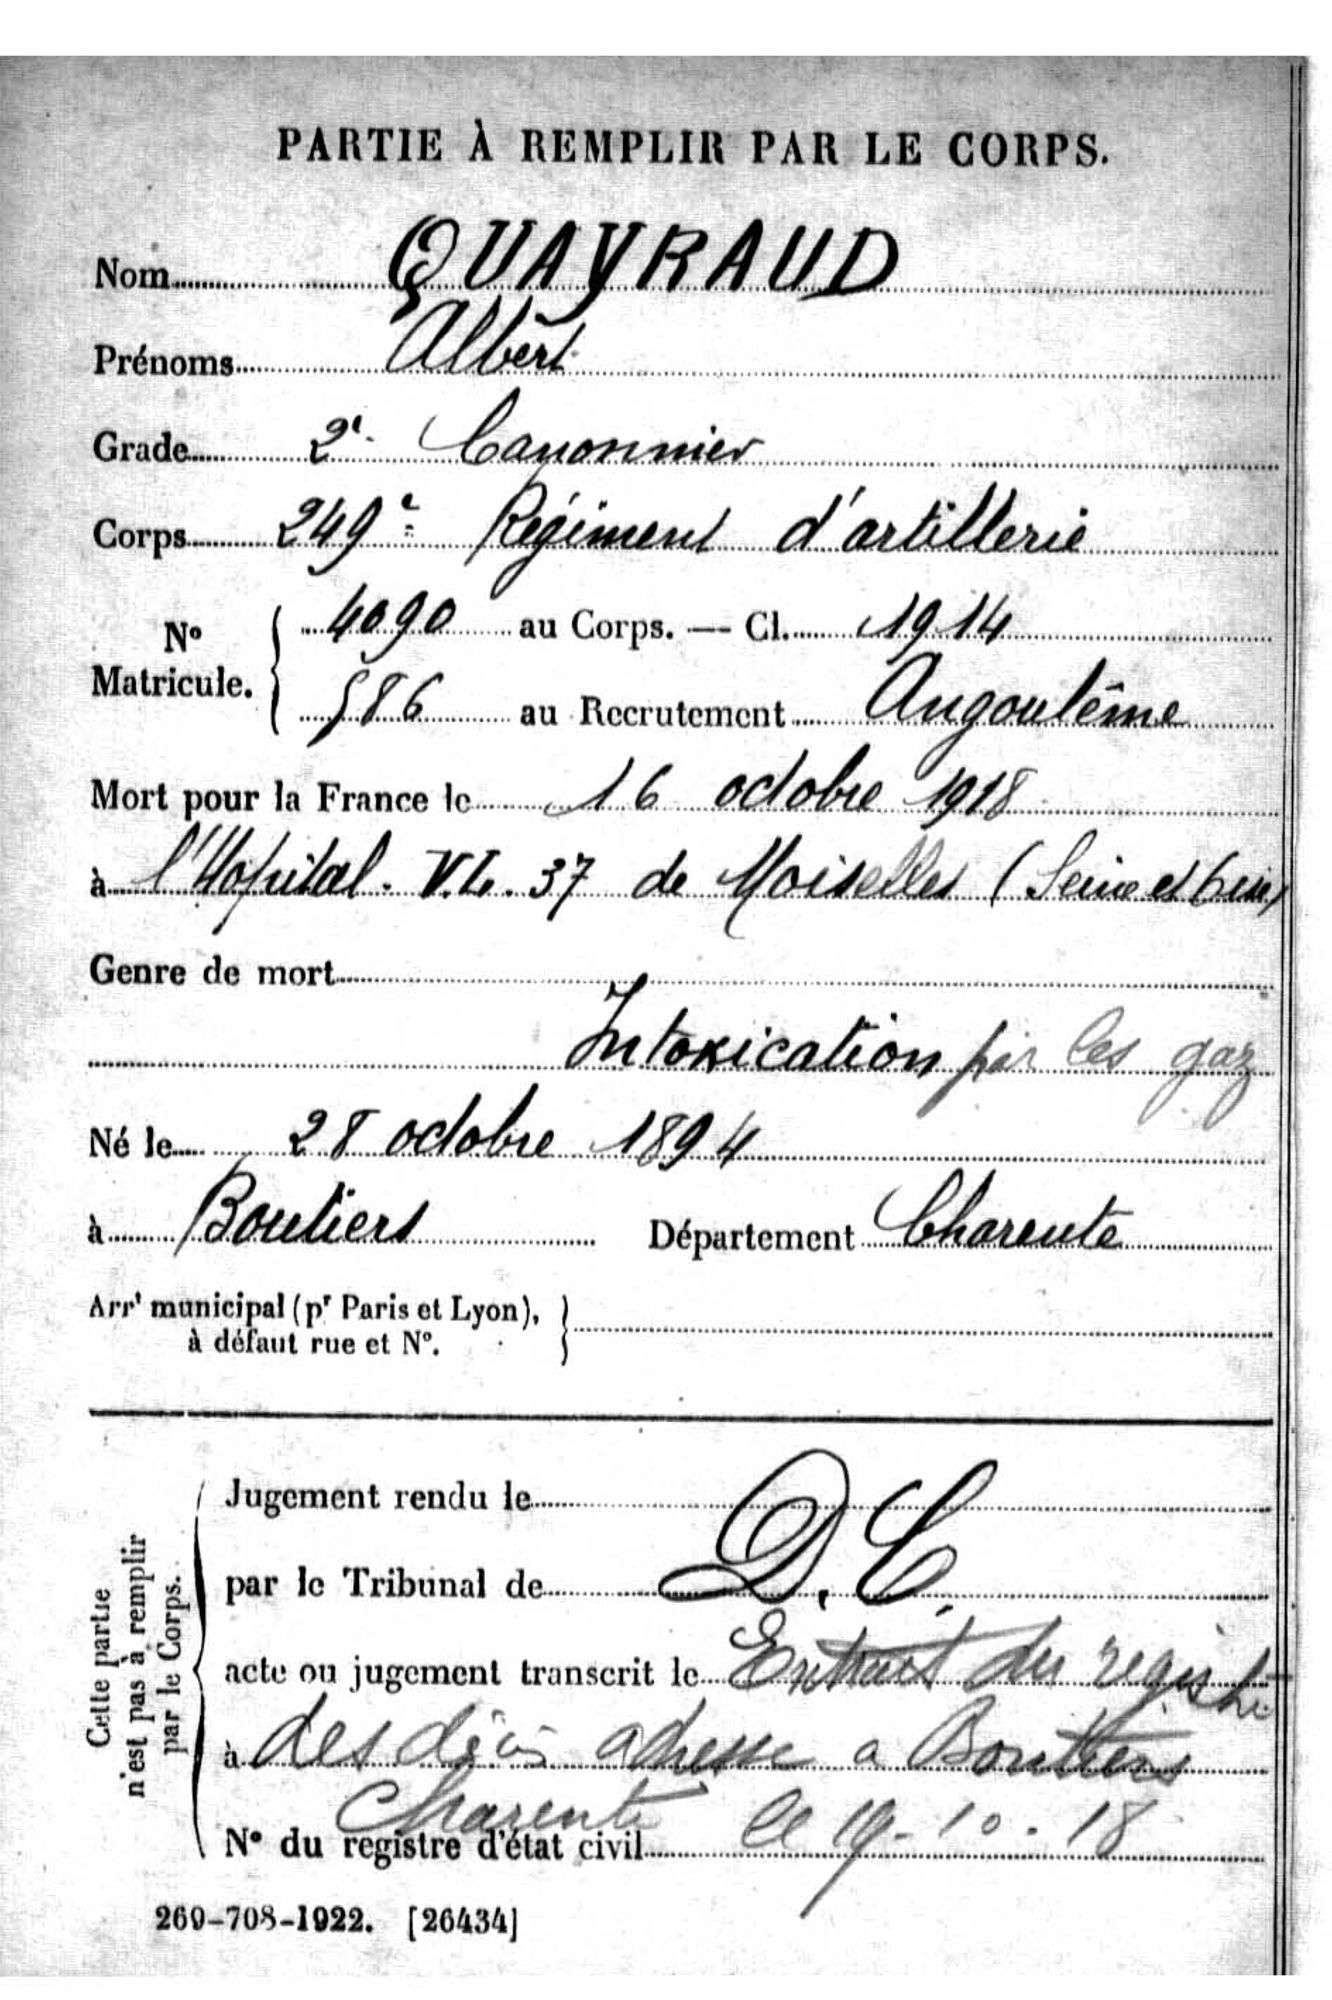 PARTIE À REMPLIR PAR LE CORPS.
Nom QUAYRAUD
Prénoms Albert
Grade 2e Canonnier
Corps 249e Régiment d'artillerie
No Matricule. 4090 au Corps. — Cl. 1914
586 au Recrutement Angoulême
Mort pour la France le 16 octobre 1918
à l'Hôpital. V.L. 37 de Moiselles (Seine et Oise)
Genre de mort
Intoxication par les gaz
Né le 28 octobre 1894
à Boutiers Département Charente
Arrt municipal (pr Paris et Lyon),
à défaut rue et No.
Cette partie
n'est pas à remplir
par le Corps.
Jugement rendu le
par le Tribunal de D. C.
acte ou jugement transcrit le Extrait du registre
à des décès adressé a Boutiers
Charente
No du registre d'état civil le 19-10-18
260-708-1922. [26434]